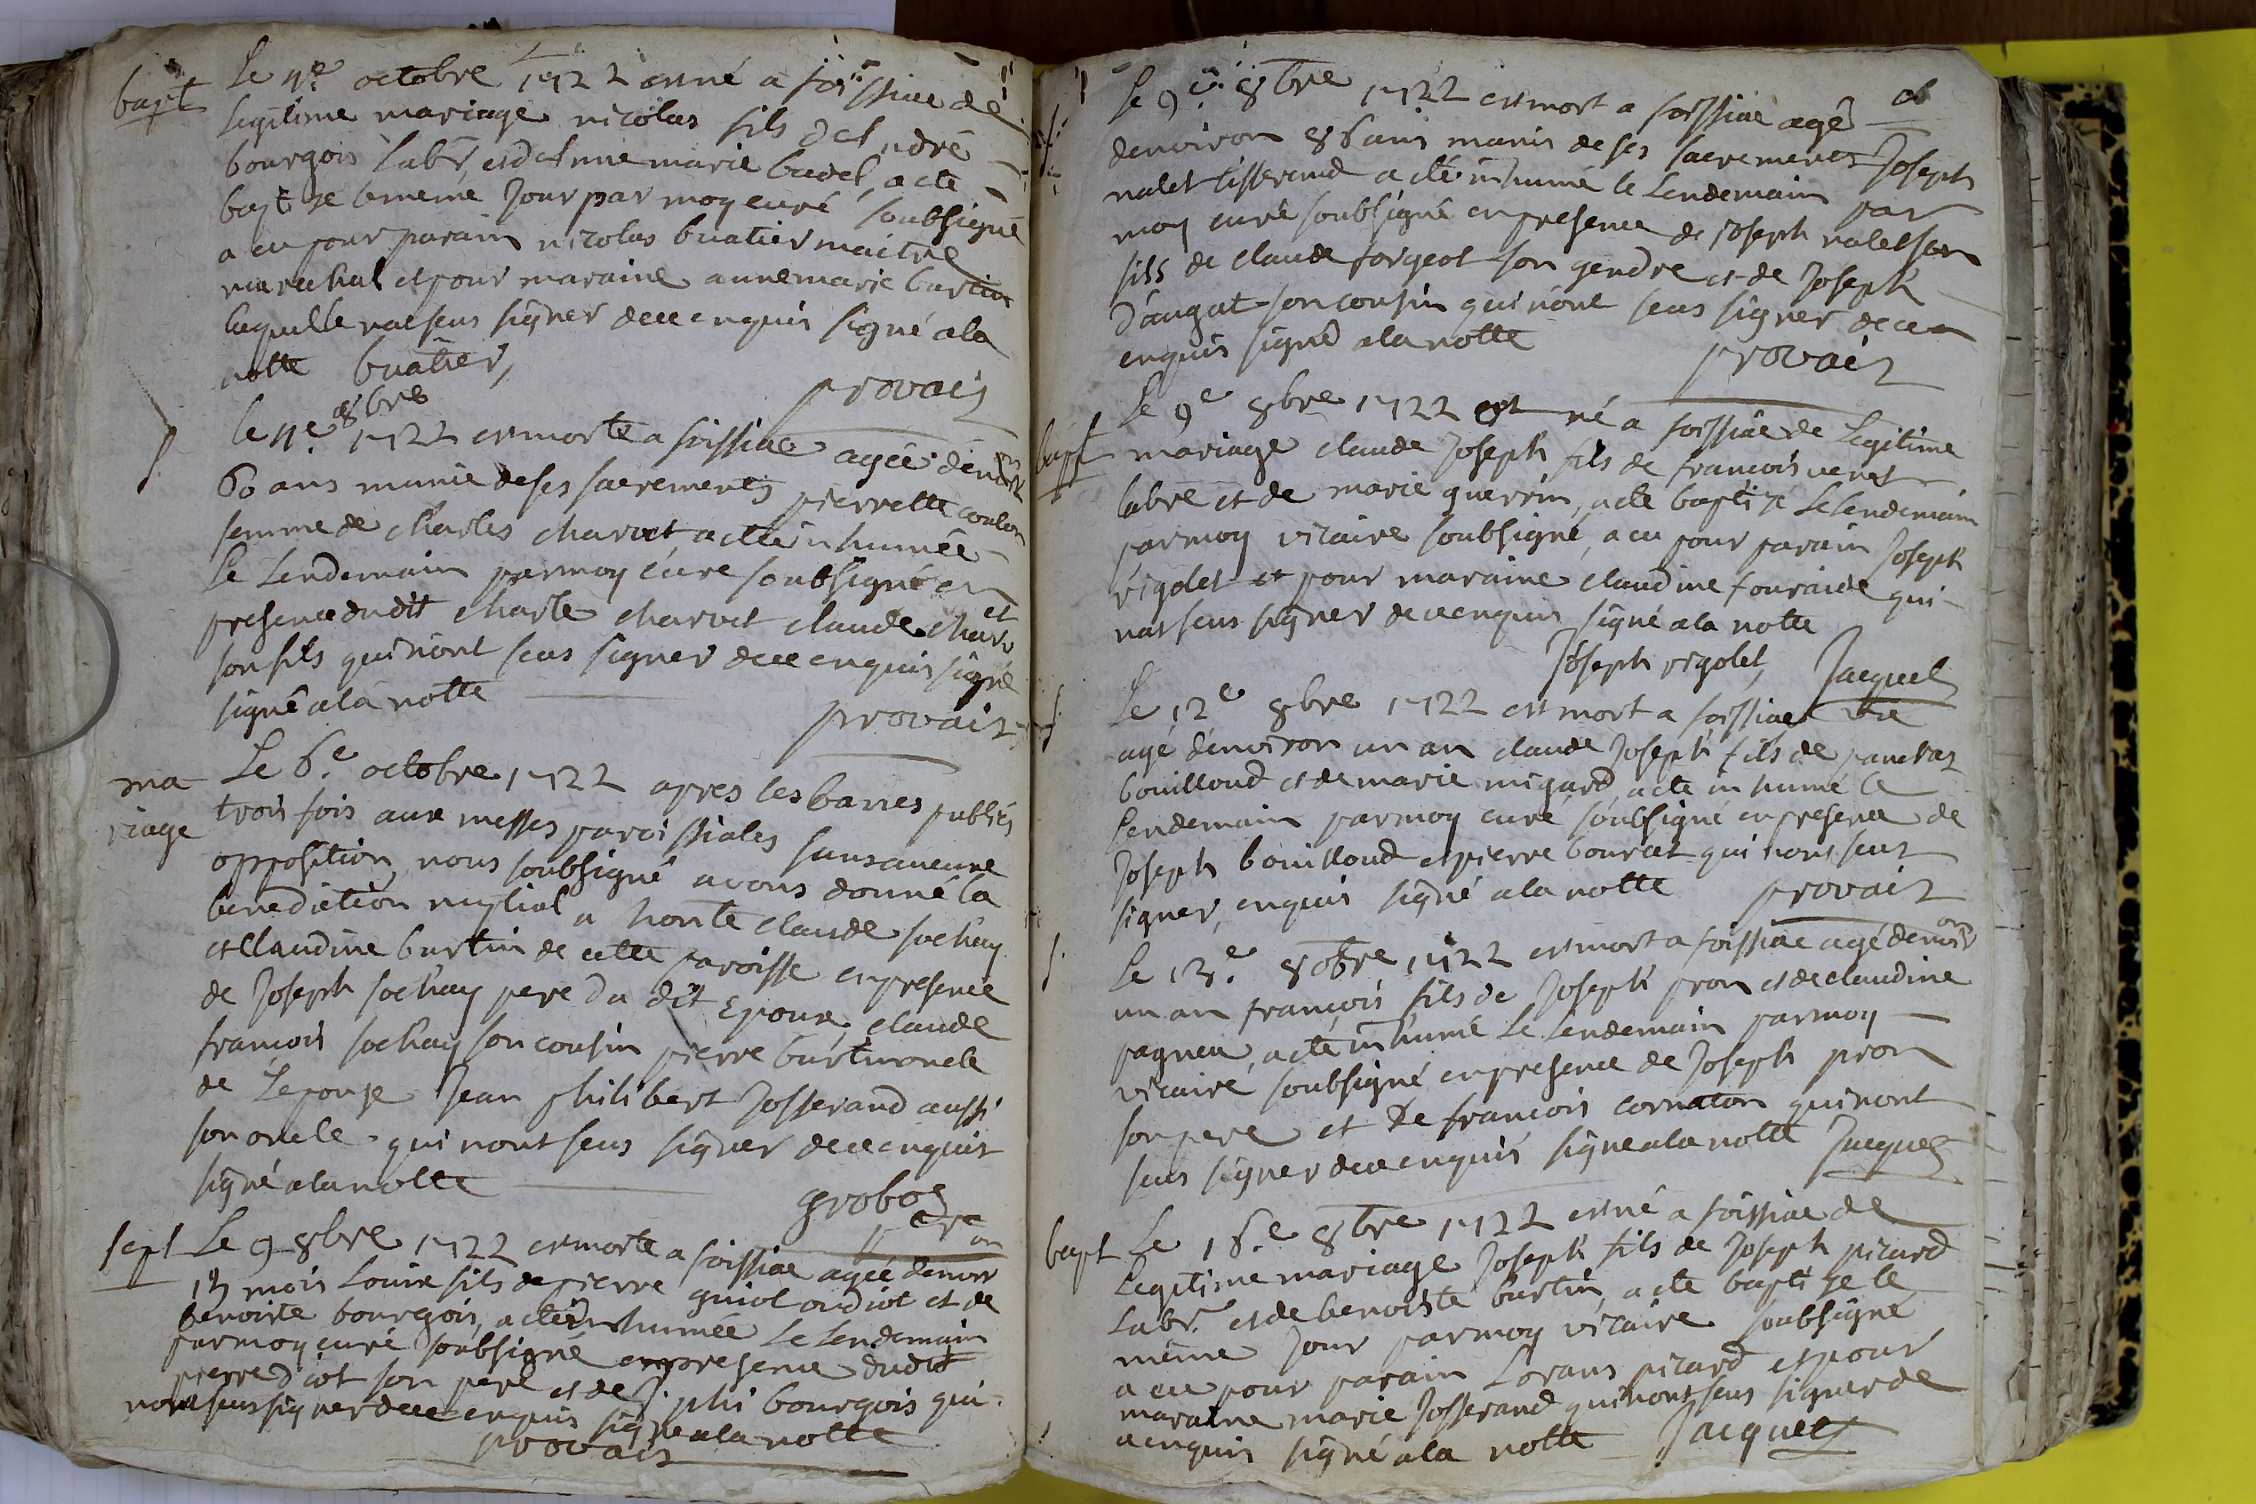 bapt
Le 4e octobre 1722 est né a foissiac de
Legitime mariage nicolas fils d'andré
bourgois Labr et d'anne marie badel, a eté
baptizé le meme Jour par moy curé soubsigné
a eu pour parain nicolas buatier maitre
marechal et pour maraine anne marie burtin
laquelle na seus signer de ce enquis signé a la
notte buatier,
provais
le 4e 8bre
1722 est morte a foissiac agée denviron
60 ans munie de ses sacrements pierrette coulon
femme de charles charvet, a eté inhumée
Le Lendemain par moy curé soubsigné en
presence dudit charle charvet claude charvet
son fils qui n'ont seus signer de ce enquis signé
signé a la notte
provais
ma
riage
Le 6e octobre 1722 apres les banes publiés
trois fois aux messes paroissiales sans aucune
opposition, nous soubsigné avons donné la
benediction nuptial a honte claude sochay
et Claudine burtin de cette paroisse en presence
de Joseph sochay pere du dit Epoux, claude
francois sochay son cousin pierre burtin oncle
de Lepouse Jean philibert Josserand aussi
son oncle qui n'ont seus signer de ce enquis
signé a la notte
grobos
sept
Le 9 8bre 1722 est morte a foissiac agée denviron
13 mois Louise fils de pierre guiot ou diot et de
benoite bourgois, a eté inhumée Le Lendemain
par moy curé soubsigné en presence dudit
pierre diot son pere et de J. phi bourgois qui
nont seus signer de ce enquis signe a la notte
provais
Le 9e 8bre 1722 est mort a foissiac agé
denviron 86 ans munis de ses sacrements Joseph
nalet tisserand a eté inhumé le Lendemain par
moy curé soubsigné en presence de Joseph nalet son
fils de claude forgeot son gendre et de Joseph
dangat son cousin qui n'ont seus signer de ce
enquis signé a la notte
provais
bapt
Le 9e 8bre 1722 est né a foissiac de Legitime
mariage claude Joseph fils de francois venet
labre et de marie guerrin, a eté baptizé Le Lendemain
par moy vicaire soubsigné, a eu pour parain Joseph
rigolet et pour maraine claudine fouraide qui
na seus signer de ce enquis signé a la notte
Joseph rigolet, Jacquet
vre
Le 12e 8bre 1722 est mort a foissiac
agé denviron un an claude Joseph fils de pancras
bouilloud et de marie migard, a eté inhumé le
Lendemain par moy curé soubsigné en presence de
Joseph bouilloud et pierre bourcet qui nont seus
signer, enquis signé a la notte provais
Le 13e 8obre 1722 est mort a foissiac agé denviron
un an françois fils de Joseph pron et de claudine
pagneu, a eté inhumé Le Lendemain par moy
vicaire soubsigné en presence de Joseph pron
son pere et de francois cornaton qui n'ont
seus signer de ce enquis signe a la notte Jacquet
bapt
Le 16e 8bre 1722 est né a foissiac de
Legitime mariage Joseph fils de Joseph picard
Labr. et de benoiste burtin, a eté baptizé le
meme Jour par moy vicaire soubsigné
a eu pour parain Lorans picard et pour
maraine marie Josserand qui nont seus signer de
ce enquis signé a la notte Jacquet